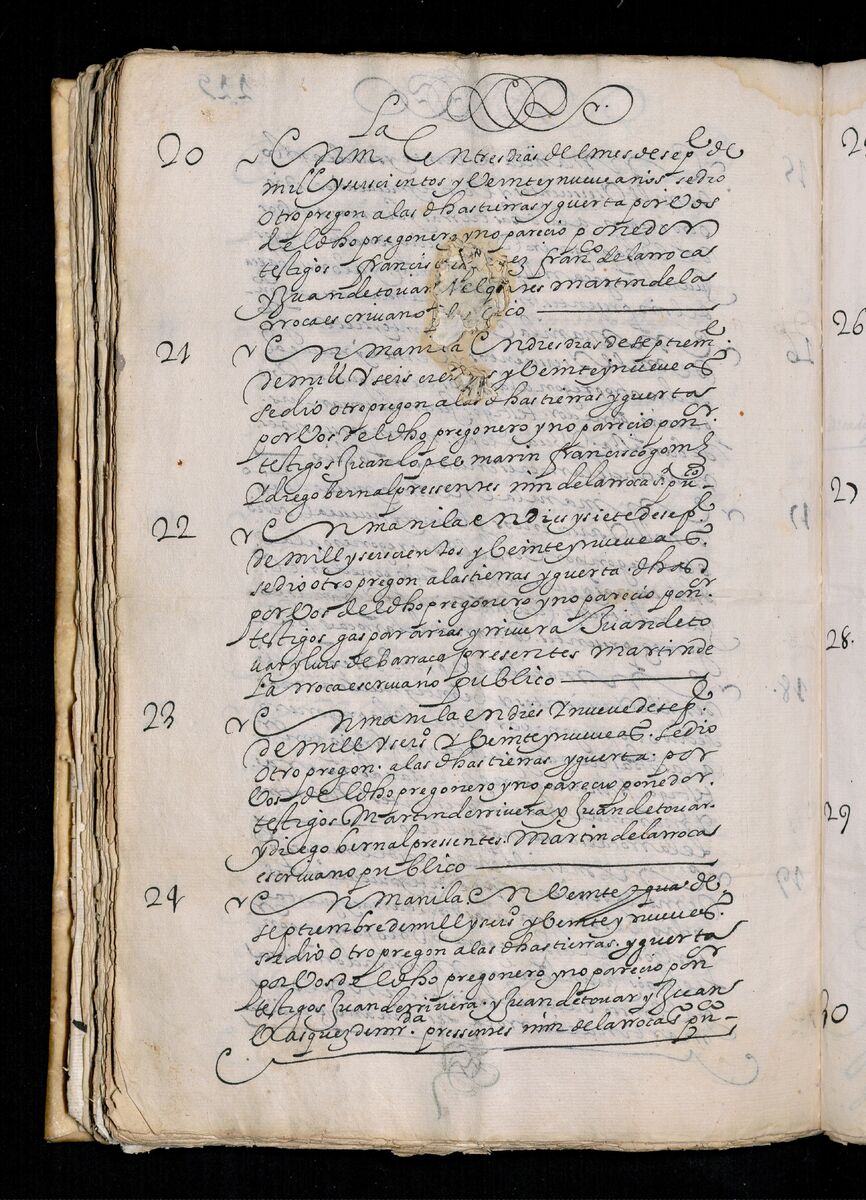 20
En mla En tres dias del mes de sepe de
mill y seiscientos y Veinte y nueve anos se dio
otro pregon a las dhas tierras y guerta por Vos
de el dho pregonero y no parecio ponedor
testigos franco de la rroca
y Juan de tovar martin de la
rroca escrivano
21
En manila En dies dias de septieme
de mill y seis y Veinte y nueve as
se dio otro pregon a las dhas tierras y guertas
por Vos del dho pregonero y no parecio ponor
testigos Juan lopes marin francisco gomz
Y diego bernal pressentes mn de la rroca sno puco
22
En manila en dies y siete de sepe
de mill y seiscientos y Veinte y nueve as
se dio otro pregon a las tierras y guerta dhas
por Vos de el dho pregonero y no parecio ponor
testigos gaspar arias y rrivera Juan de to
var y luis de barraca presentes martin de
La rroca escrivano publico
23
En manila en dies Y nueve de sepe
de mill y seiso Y Veinte y nueve as se dio
otro pregon a las dhas tierras y guerta por
Vos de el dho pregonero y no parecio ponedor
testigos Martin de rrivera y Juan de tovar
y diego bernal pressentes Martin de la rroca
escrivano publico
24
En manila En Veinte y qua de
septiembre de mill y seiso y Veinte y nueve as
se dio otro pregon a las dhas tierras y guertas
por Vos de el dho pregonero y no parecio ponor
testigos Juan de rrivera y Juan de tovar y Juan
Vasquez de mirda pressentes mn de la rroca sno puco
26
27
28
29
30